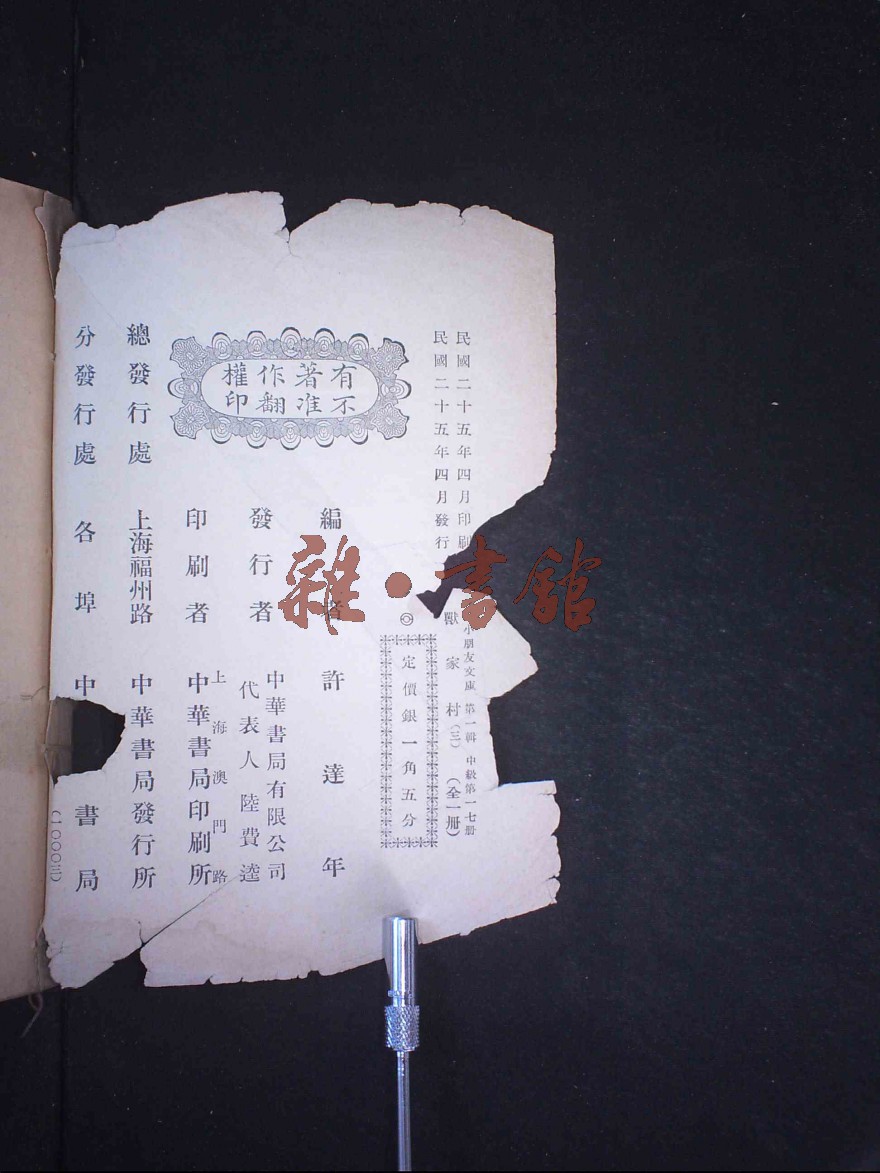 民國二十五年四月印刷
民國二十五年四月發行
小朋友文庫 第一輯 中級第一七册
獸家村(三) (全一册)
◎
定價銀一角五分
有著作權
不准翻印
編者 許達年
發行者 中華書局有限公司
代表人陸費逵
印刷者 上海澳門路
中華書局印刷所
總發行處 上海福州路 中華書局發行所
分發行處 各埠中 書局
雜·書館